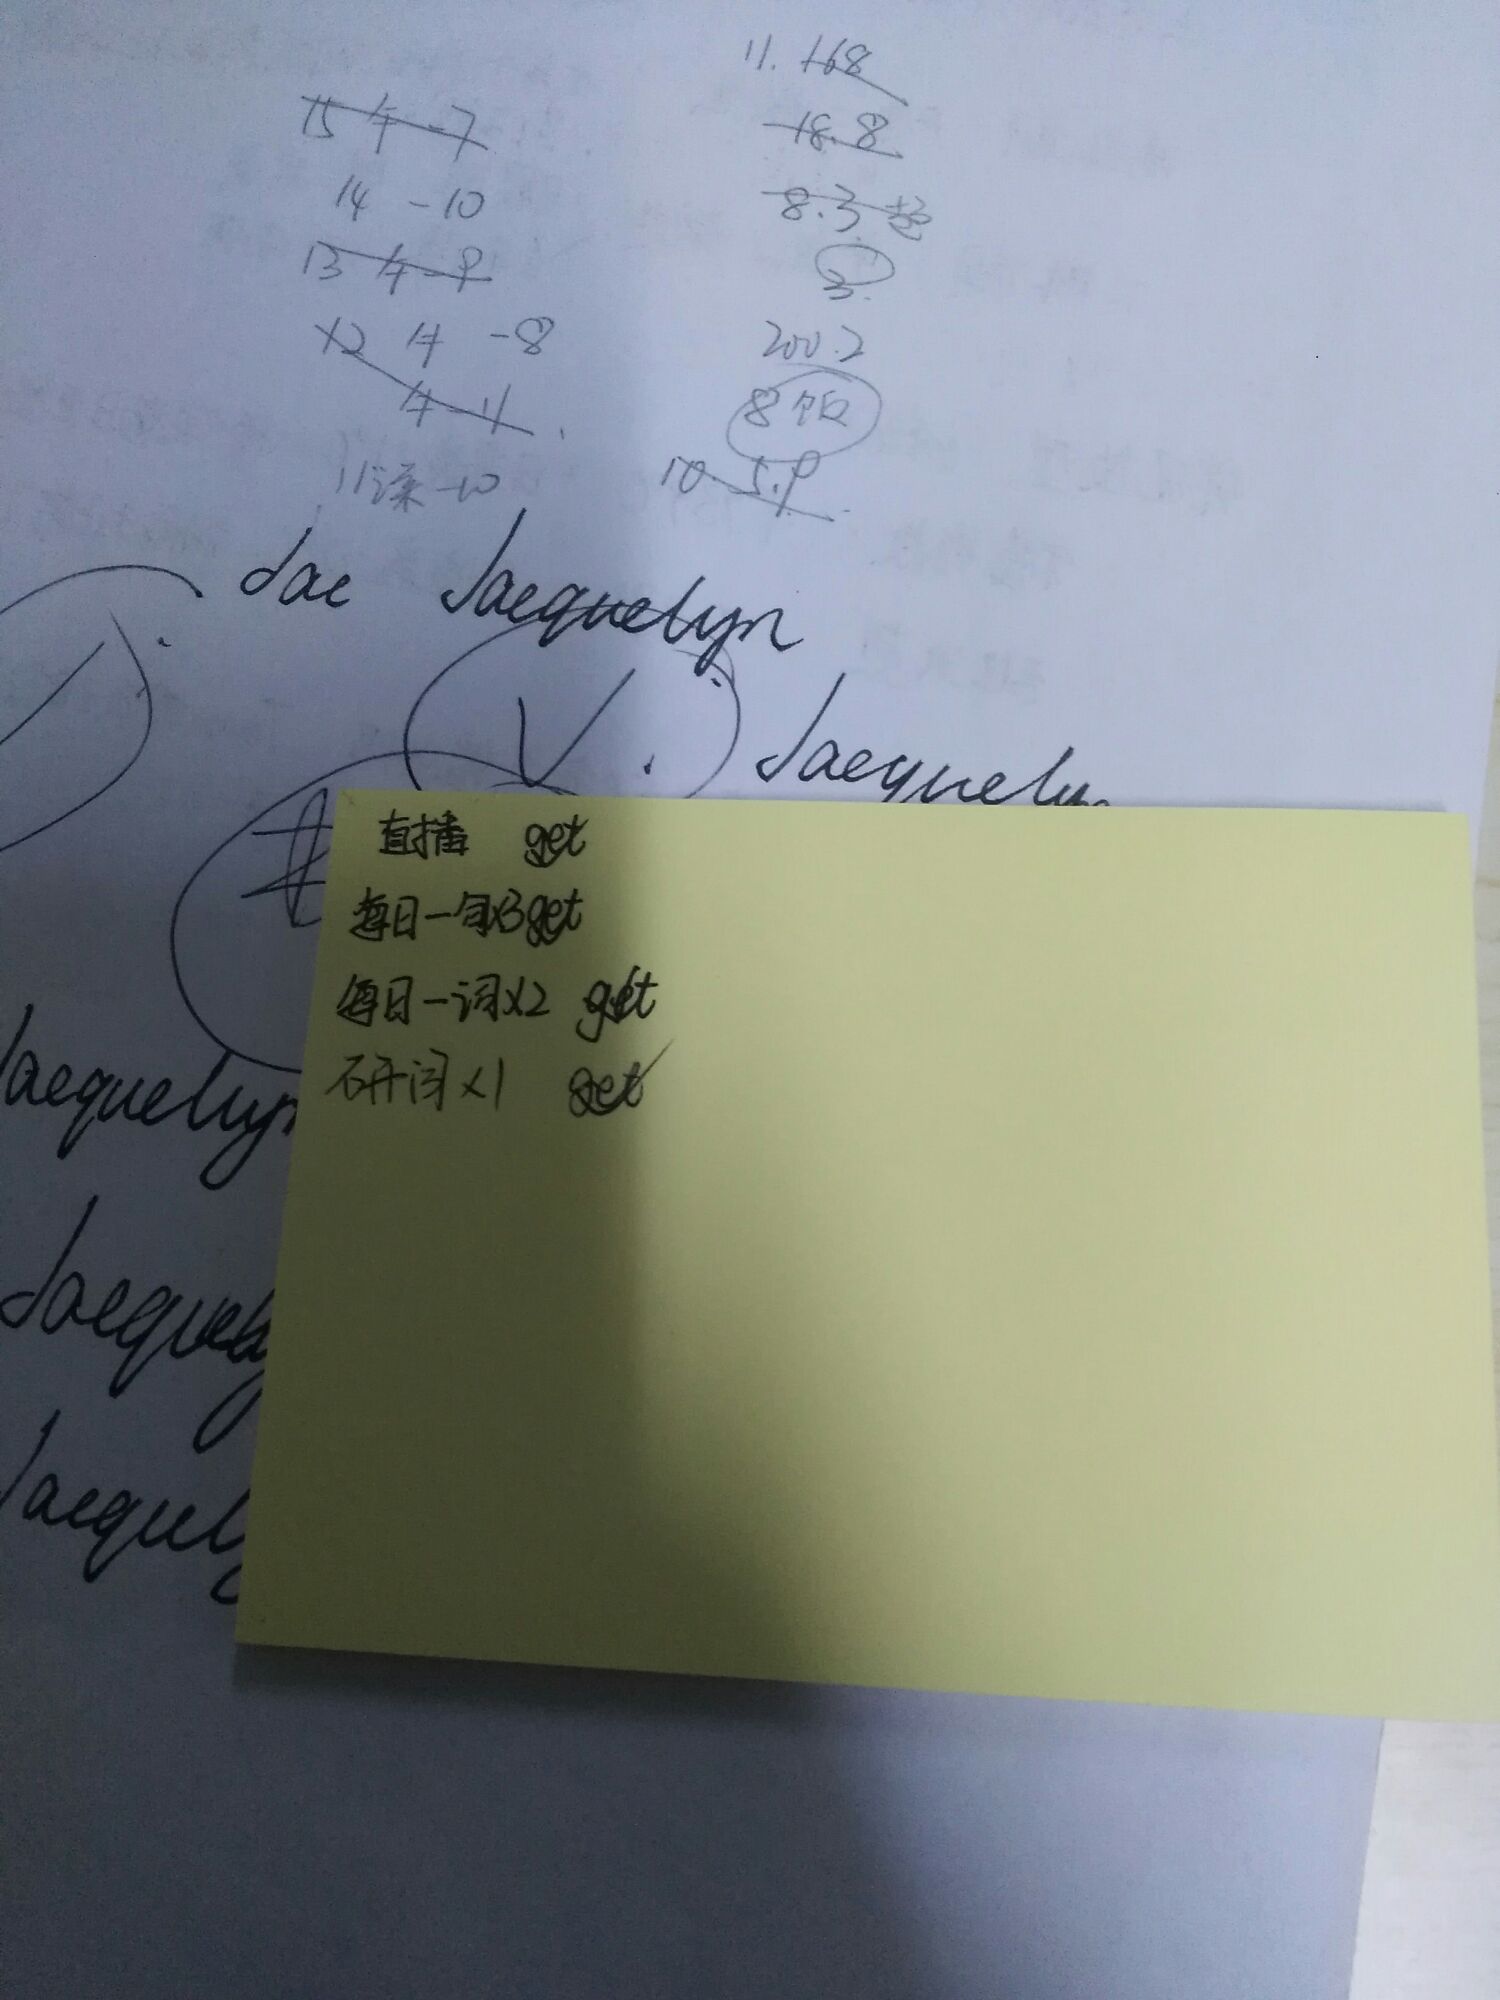 11. 168
15 午-7
18.8
14 -10
8.3
13 午-9
3.
12 午 -8
200.2
午-11
8饭
11课-10
10. 5.9
Jae Jacquelyn
Jacquelyn
直播 get
每日一句x3 get
每日一词x2 get
研词x1 get
Jacquelyn
Jacquely
Jacquely